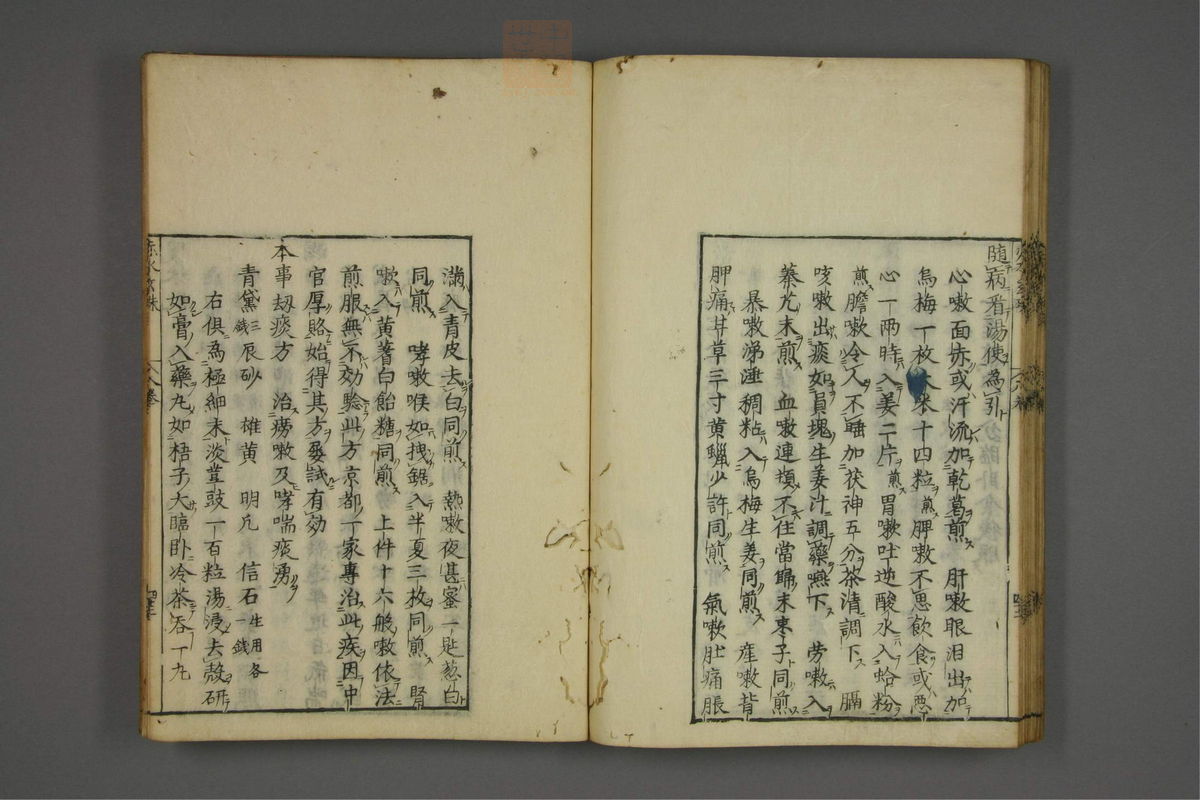 隨病看湯使為引
心嗽面赤或汗流加乾葛煎　肝嗽眼泪出加
烏梅一枚　米十四粒煎　脾嗽不思飲食或惡
心一兩時入姜二片煎　胃嗽吐逆酸水入蛤粉
煎　膽嗽令人不睡加茯神五分茶清調下　膈
咳嗽出痰如員塊生姜汁調藥嚥下　勞嗽入
蓁艽末煎　血嗽連頻不住當歸末枣子同煎
暴嗽涕唾稠粘入烏梅生姜同煎　產嗽背
胛痛甘草三寸黄蠟少許同煎　氣嗽肚痛脹
滿入青皮去白同煎　熱嗽夜甚蜜一匙葱白
同煎　哮嗽喉如拽鋸入半夏三枚同煎　腎
嗽入黄蓍白飴糖同煎　上件十六般嗽依法
煎服無不効驗此方京都一家專治此疾因中
官厚賂始得其方屡試有効
本事刼痰方　治痨嗽及哮喘痰湧
青黛三錢　辰砂　雄黄　明凡　信石生用各一錢
右俱為極細末淡荳豉一百粒湯浸去殻研
如膏入藥丸如梧子大臨卧冷茶吞一丸